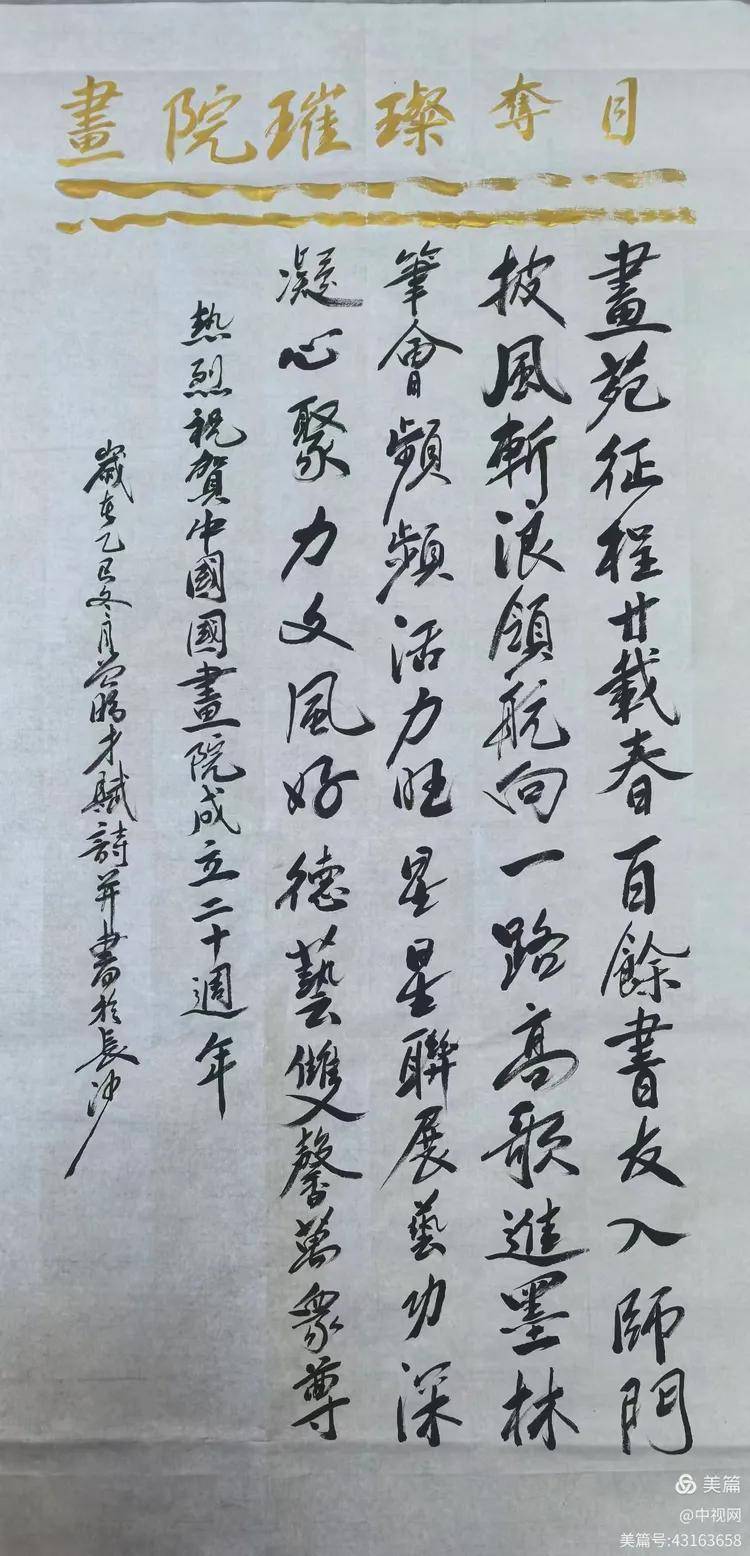 畫院璀璨奪目
畫苑征程廿載春百餘書友入師門
披風斬浪領航向一路高歌進墨林
筆會頻頻活力旺星星聯展藝功深
凝心聚力文風好德藝雙馨萬眾尊
熱烈祝賀中國國畫院成立二十週年
歲在乙巳冬月才賦詩并書於長沙
美篇
@中视网
美篇号:43163658